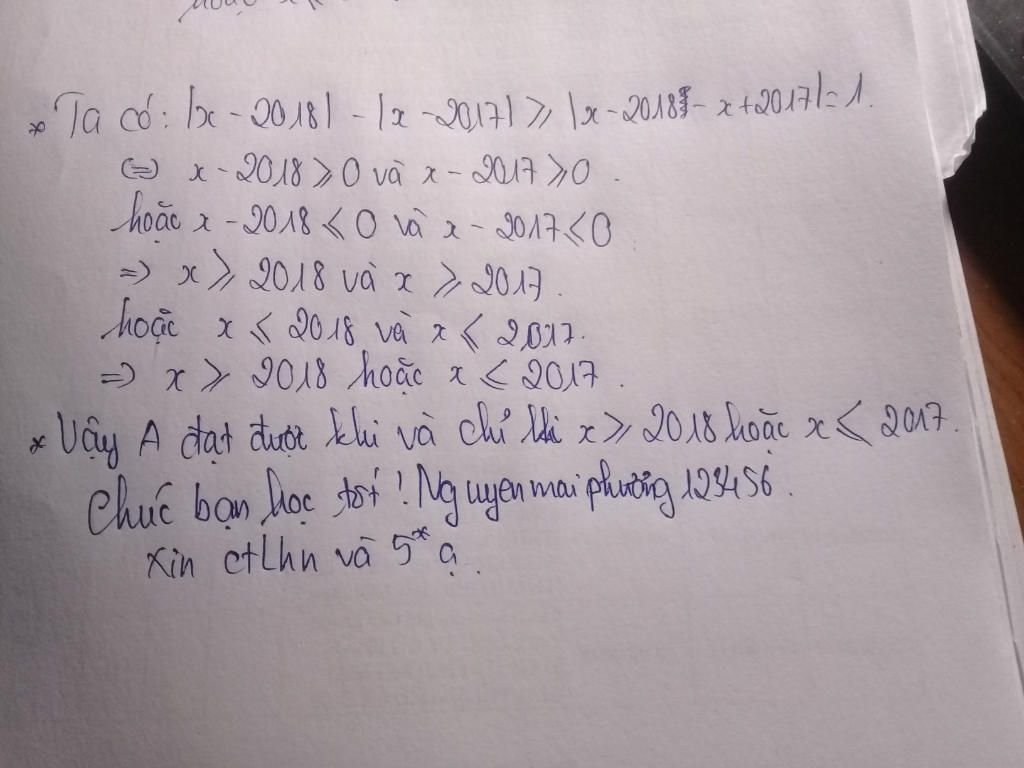 * Ta có: |x - 2018| - |x - 2017| ⩾ |x - 2018 - x + 2017| = 1.
(=) x - 2018 ⩾ 0 và x - 2017 ⩾ 0.
hoặc x - 2018 ⩽ 0 và x - 2017 ⩽ 0
=> x ⩾ 2018 và x ⩾ 2017.
hoặc x ⩽ 2018 và x ⩽ 2017.
=> x ⩾ 2018 hoặc x ⩽ 2017.
* Vậy A đạt được khi và chỉ khi x ⩾ 2018 hoặc x ⩽ 2017.
Chúc bạn học tốt! Nguyenmaiphương123456.
Xin ctlhn và 5* ạ.